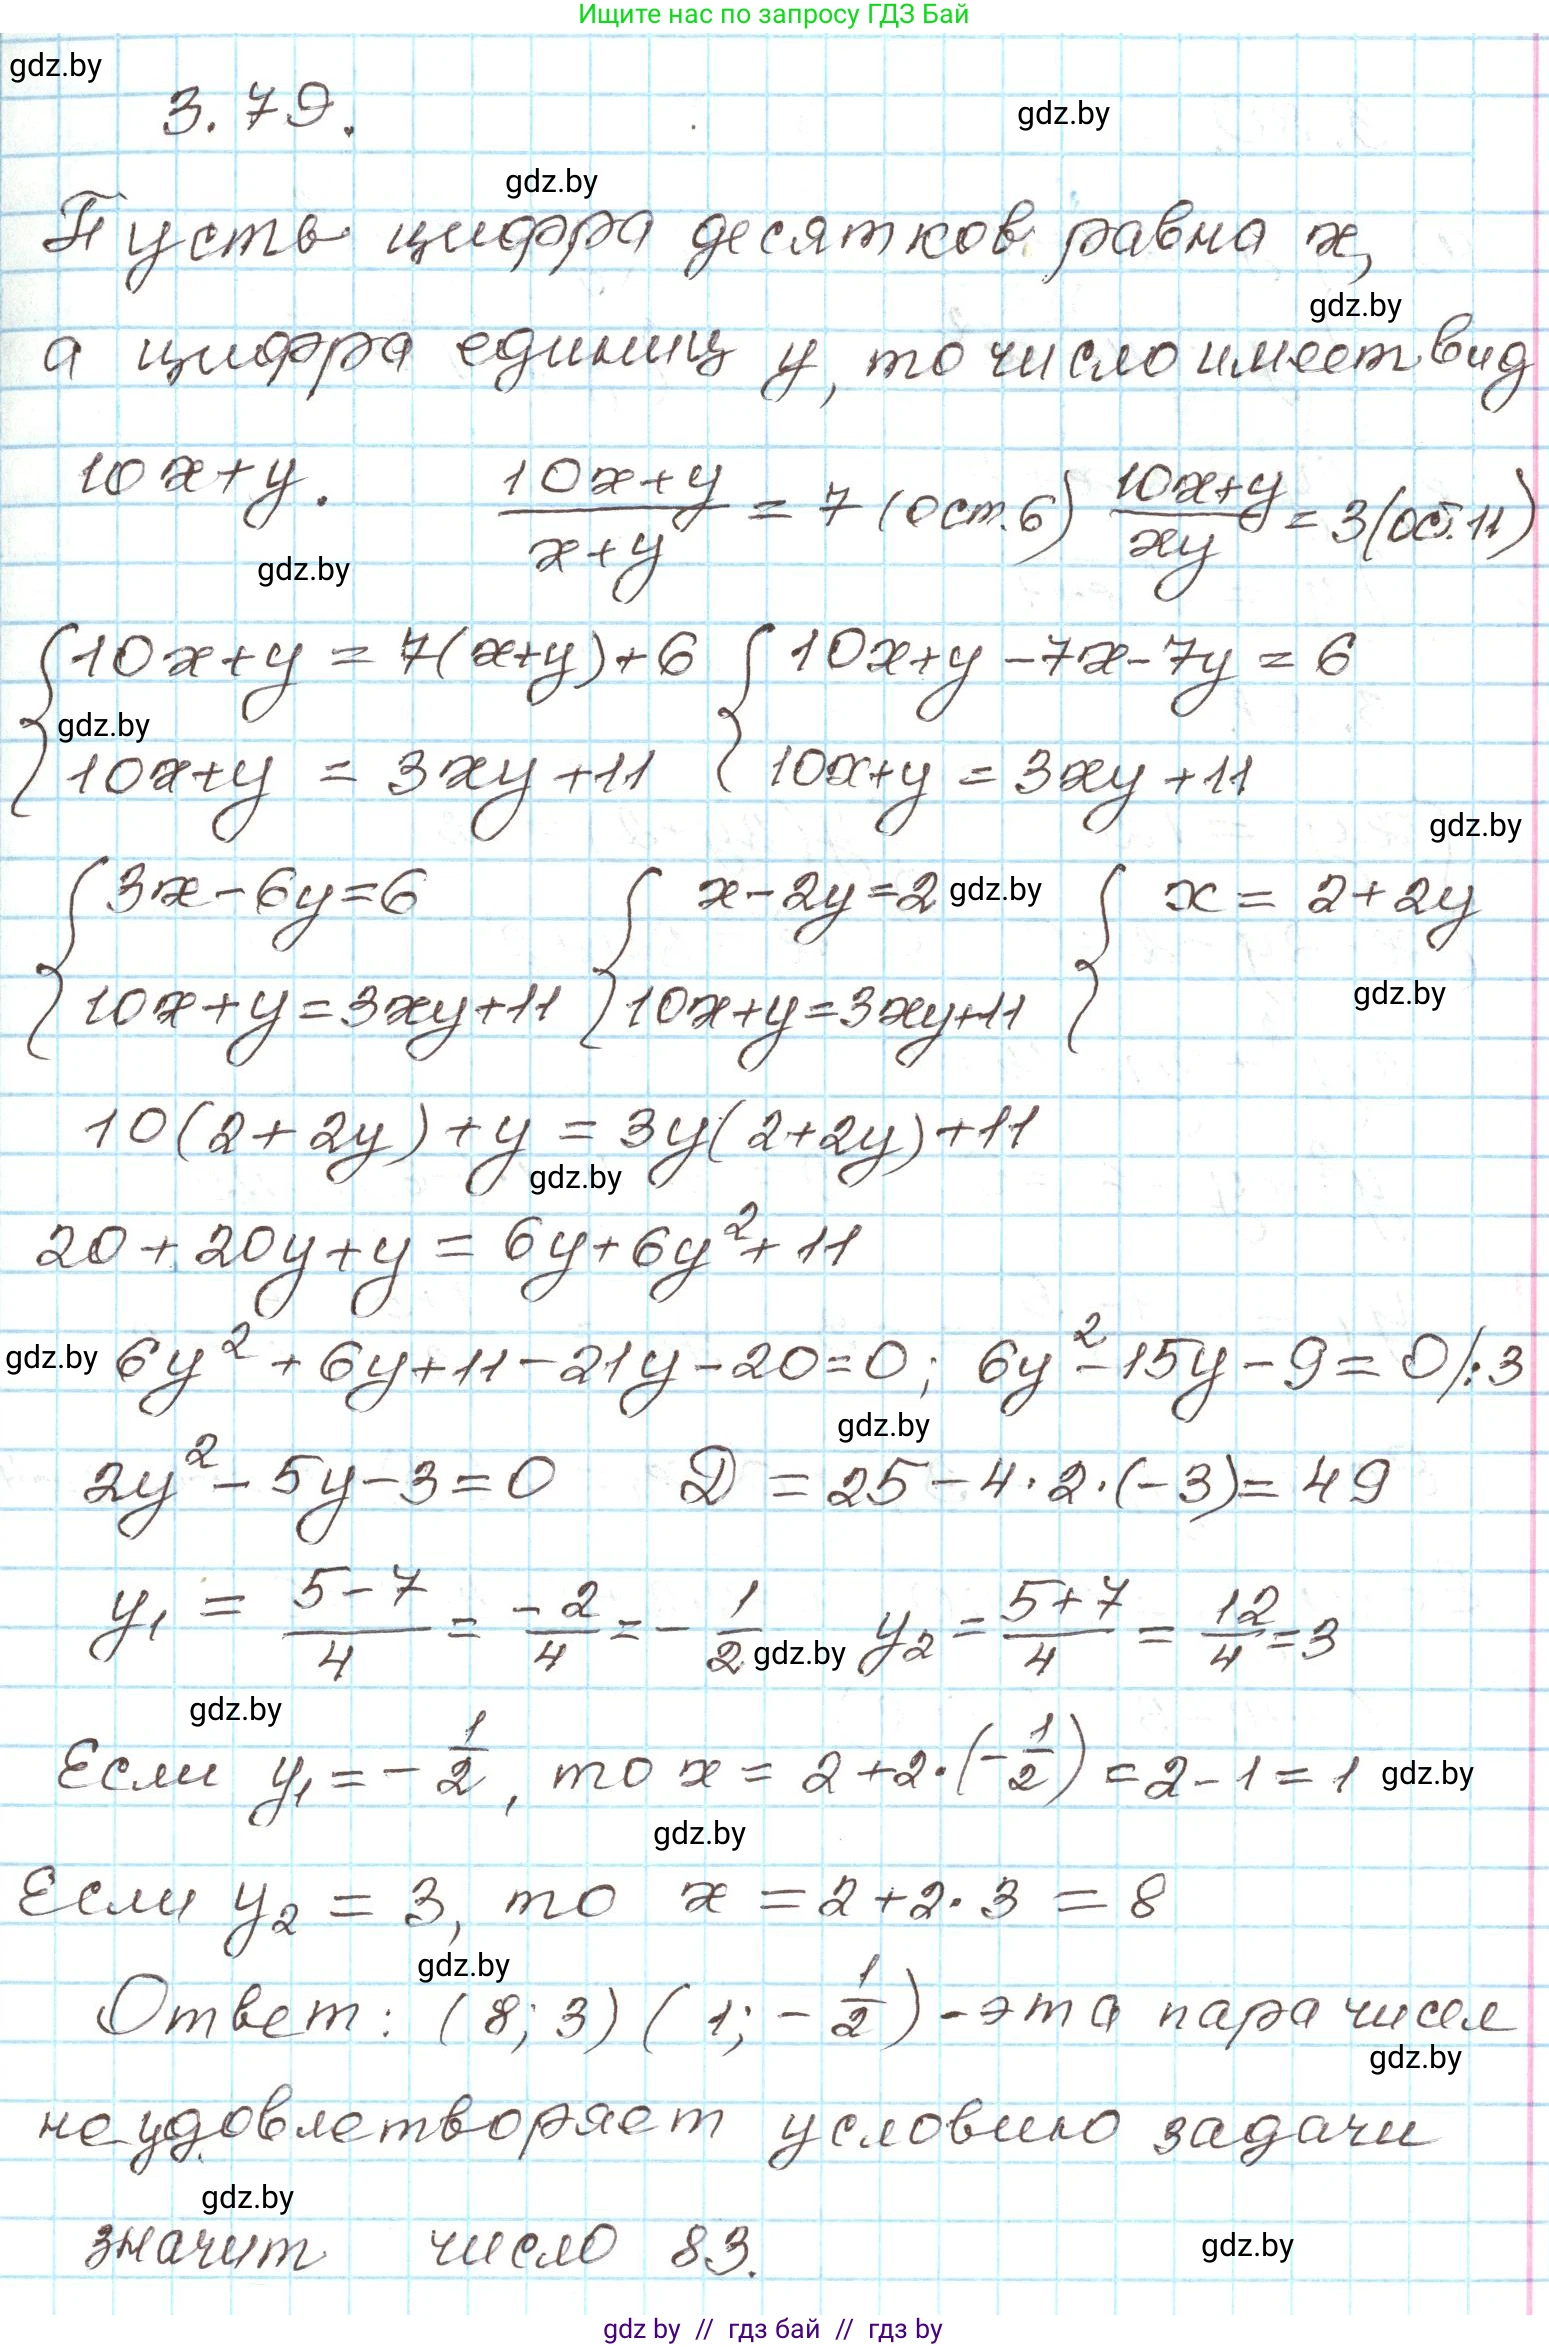 Ищите нас по запросу ГДЗ Бай
gdz.by
3.79.
gdz.by
gdz.by
Пусть цифра десятков равна x,
gdz.by
а цифра единиц y, то число имеет вид
10x+y. (10x+y)/(x+y) = 7 (ост.6) (10x+y)/(xy) = 3(ост.11)
gdz.by
{10x+y = 7(x+y)+6 {10x+y-7x-7y = 6
gdz.by
10x+y = 3xy+11 10x+y = 3xy+11
gdz.by
{3x-6y=6 {x-2y=2 gdz.by {x = 2+2y
10x+y=3xy+11 10x+y=3xy+11 gdz.by
10(2+2y)+y = 3y(2+2y)+11
gdz.by
20+20y+y = 6y+6y²+11
gdz.by 6y²+6y+11-21y-20=0; 6y²-15y-9=0/:3
gdz.by
2y²-5y-3=0 D = 25-4·2·(-3)=49
y₁ = (5-7)/4 = -2/4 = -1/2 gdz.by y₂ = (5+7)/4 = 12/4 = 3
gdz.by
Если y₁ = -1/2, то x = 2+2·(-1/2) = 2-1 = 1 gdz.by
gdz.by
Если y₂ = 3, то x = 2+2·3 = 8
gdz.by
Ответ: (8; 3) (1; -1/2) - эта пара чисел
gdz.by
не удовлетворяет условию задачи
gdz.by
значит число 83.
gdz.by
gdz by // гдз бай // гдз by